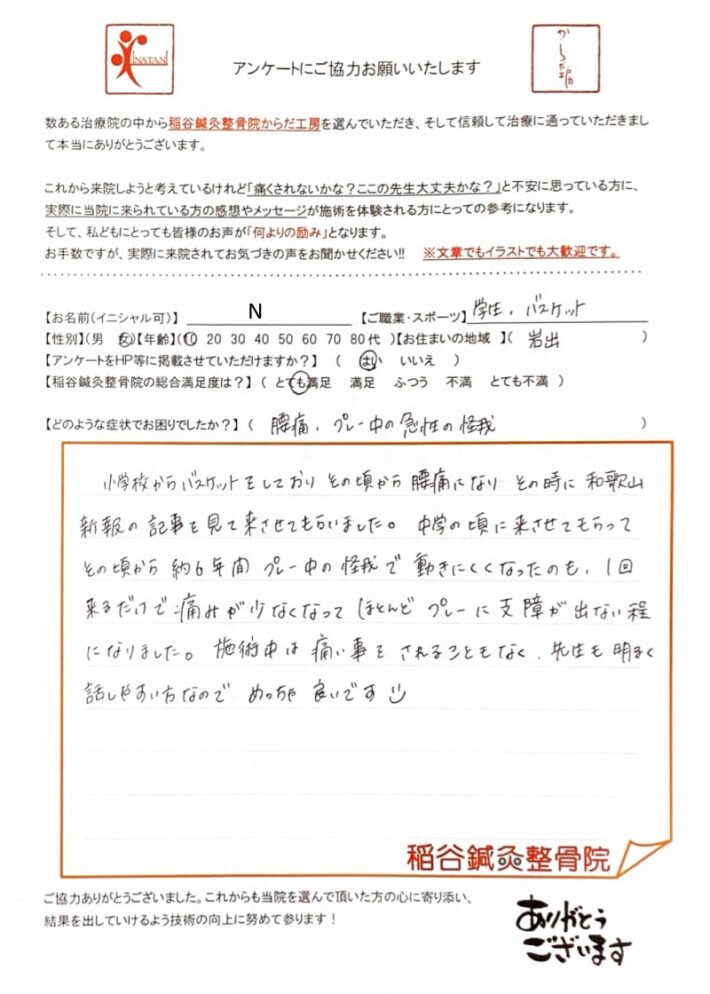 INATANI
アンケートにご協力お願いいたします
からだ工房
数ある治療院の中から稲谷鍼灸整骨院からだ工房を選んでいただき、そして信頼して治療に通っていただきまし
て本当にありがとうございます。
これから来院しようと考えているけれど「痛くされないかな？ここの先生大丈夫かな？」と不安に思っている方に、
実際に当院に来られている方の感想やメッセージが施術を体験される方にとっての参考になります。
そして、私どもにとっても皆様のお声が「何よりの励み」となります。
お手数ですが、実際に来院されてお気づきの声をお聞かせください!! ※文章でもイラストでも大歓迎です。
【お名前（イニシャル可）】 N 【ご職業・スポーツ】 学生、バスケット
【性別】（男 女）【年齢】（10 20 30 40 50 60 70 80代 ）【お住まいの地域 】（ 岩出 ）
【アンケートをHP等に掲載させていただけますか？】 （ はい いいえ ）
【稲谷鍼灸整骨院の総合満足度は？】（ とても満足 満足 ふつう 不満 とても不満 ）
【どのような症状でお困りでしたか？】（ 腰痛、プレー中の急性の怪我 ）
小学校からバスケットをしており その頃から 腰痛になり その時に 和歌山
新報の 記事を見て来させてもらいました。 中学の頃に来させてもらって
その頃から 約6年間 プレー中の 怪我で 動きにくくなったのも、1回
来るだけで 痛みが少なくなって ほとんど プレーに 支障が 出ない程
になりました。 施術中は 痛い事を されることもなく、先生も 明るく
話しやすい方なので めっちゃ 良いです
稲谷鍼灸整骨院
ご協力ありがとうございました。これからも当院を選んで頂いた方の心に寄り添い、
結果を出していけるよう技術の向上に努めて参ります！
ありがとう
ございます